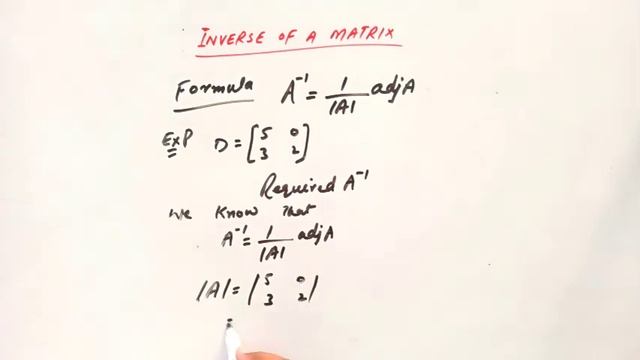 INVERSE OF A MATRIX
Formula A⁻¹ = 1/|A| adjA
Exp D = [5 0
3 2]
Required A⁻¹
We Know That
A⁻¹ = 1/|A| adjA
|A| = |5 0
3 2|